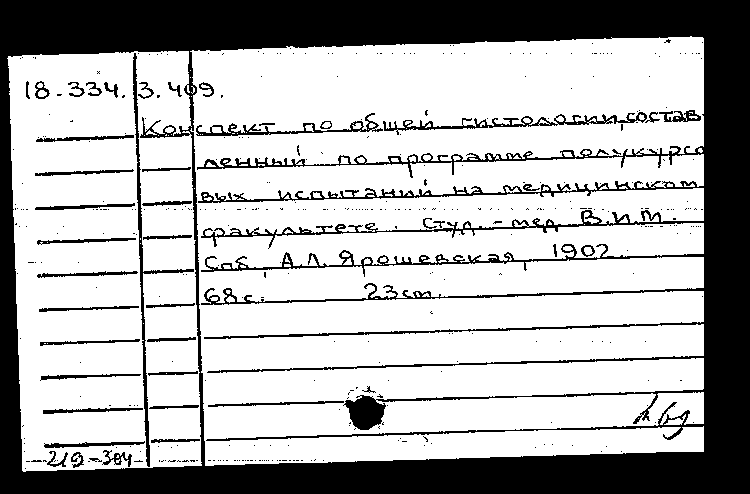 18.334.3.409.
Конспект по общей гистологии, состав-
ленный по программе полукурсо
вых испытаний на медицинском
факультете. Студ.-мед. В.И.М.
Спб, А.Л. Ярошевская, 1902.
68 с. 23 cm.
219-384